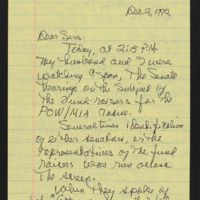 Dec. 3, 1992
Dear Sirs:
Today, at 2:15 P.M.
my husband and I were
watching C-Span, the Senate
hearings on the subject of
the fund-raisers for the
POW/MIA cause.
Several times identification
of either senators, or the
representatives of the fund
raisers was run across
the screen.
When they spoke of